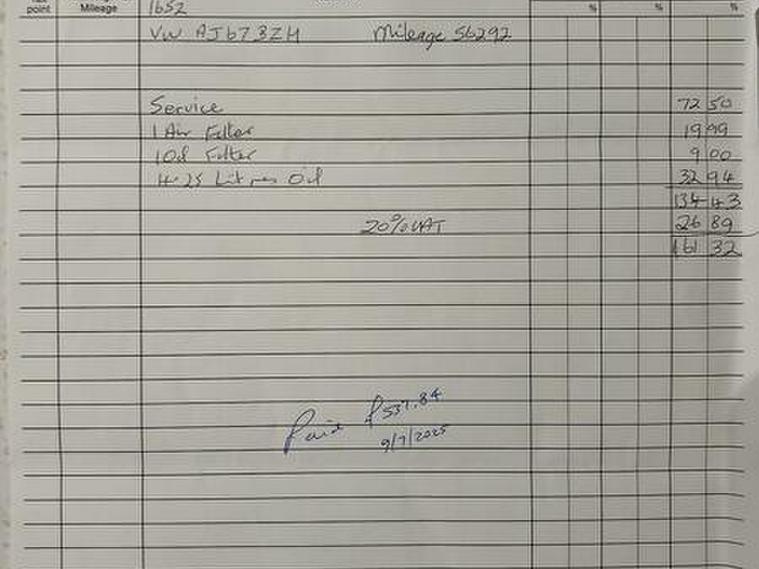 point Mileage 1652 % % %
VW AJ67 3ZH Mileage 56292
Service 72 50
1 Air Filter 19 99
1 Oil Filter 9 00
4.25 Litres Oil 32 94
134 43
20% VAT 26 89
161 32
Paid £537.84
9/7/2025